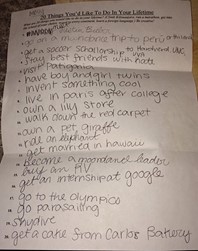 20 Things You'd Like To Do In Your Lifetime
go on a missions trip to peru
get a soccer scholarship to
stay best friends with kate
visit patagonia
have boy and girl twins
invent something cool
live in paris after college
own a lily store
walk down the red carpet
own a pet giraffe
ride an elephant
get married in hawaii
become a
buy an RV
get an internship at google
go to the olympics
go parasailing
skydive
get a cake from Carlos Bakery